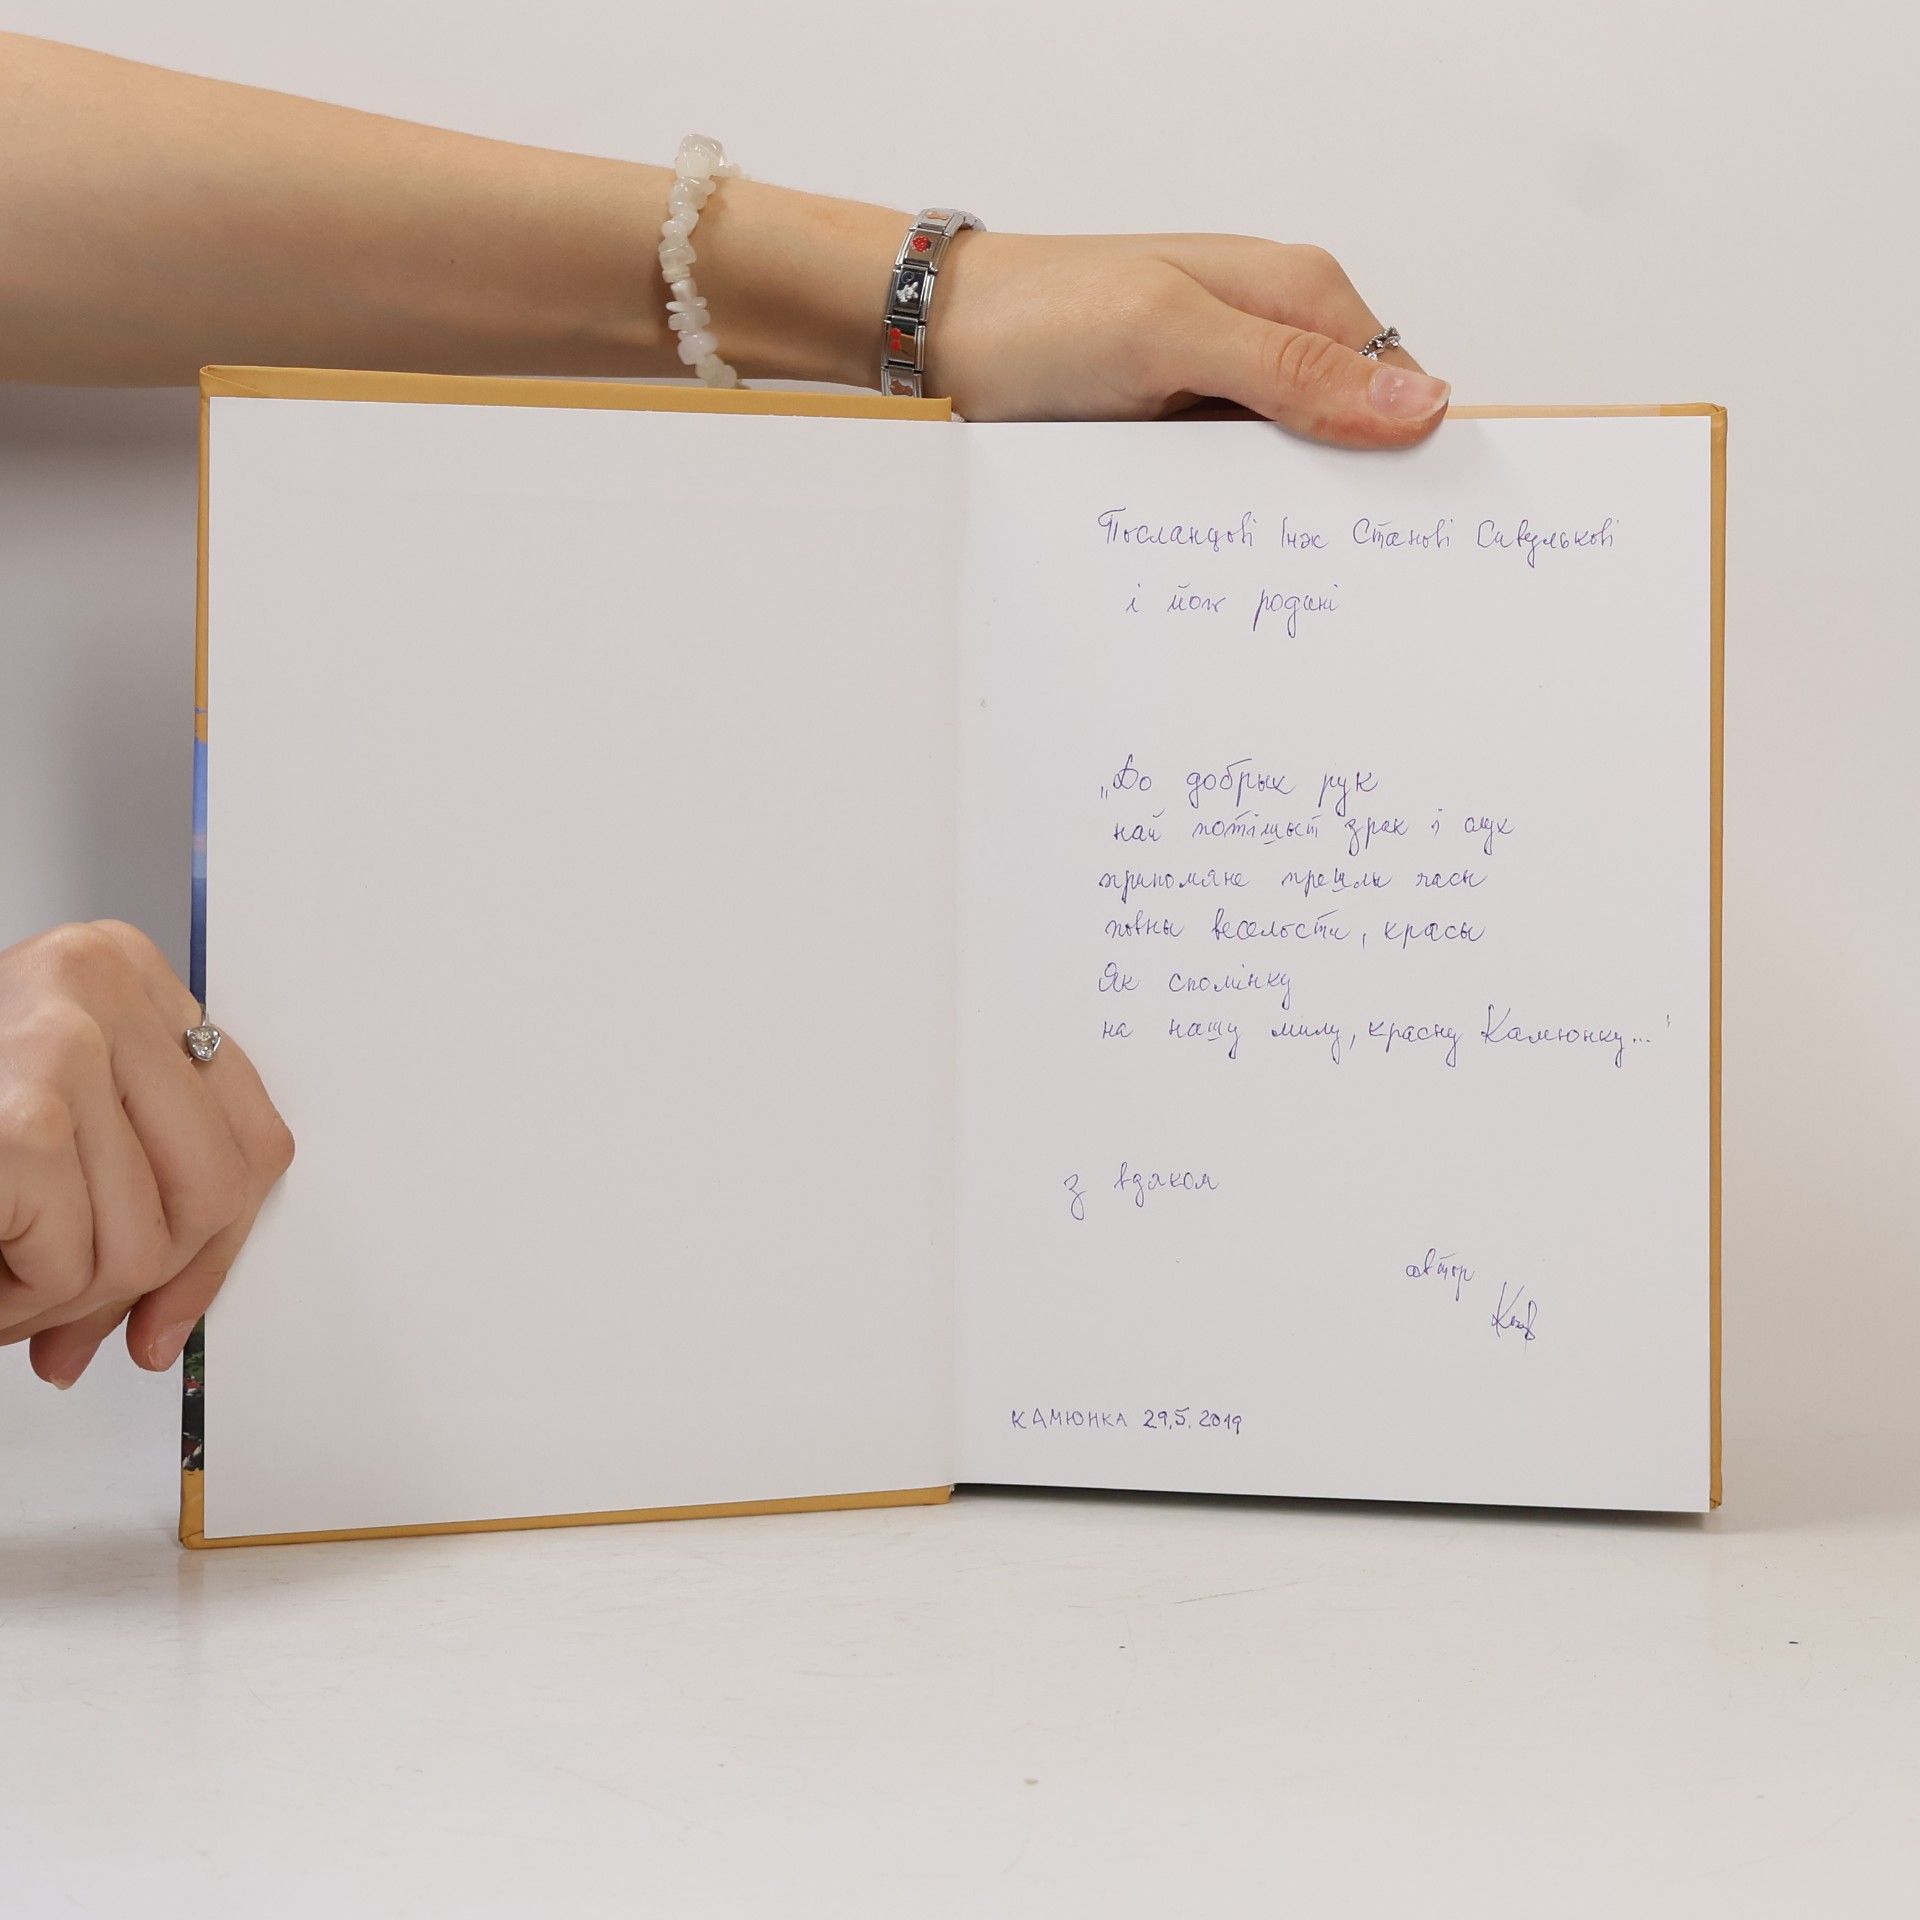 Посланцові Інж Станові Сивулькові
і йож родині
„До добрых рук
най потїшыт зрак і слух
припомяне прешлы часы
повны веселости, красы
Як спомінку
на нашу милу, красну Камюнку..."
з вдяком
автор
КАМЮНКА 29.5.2019